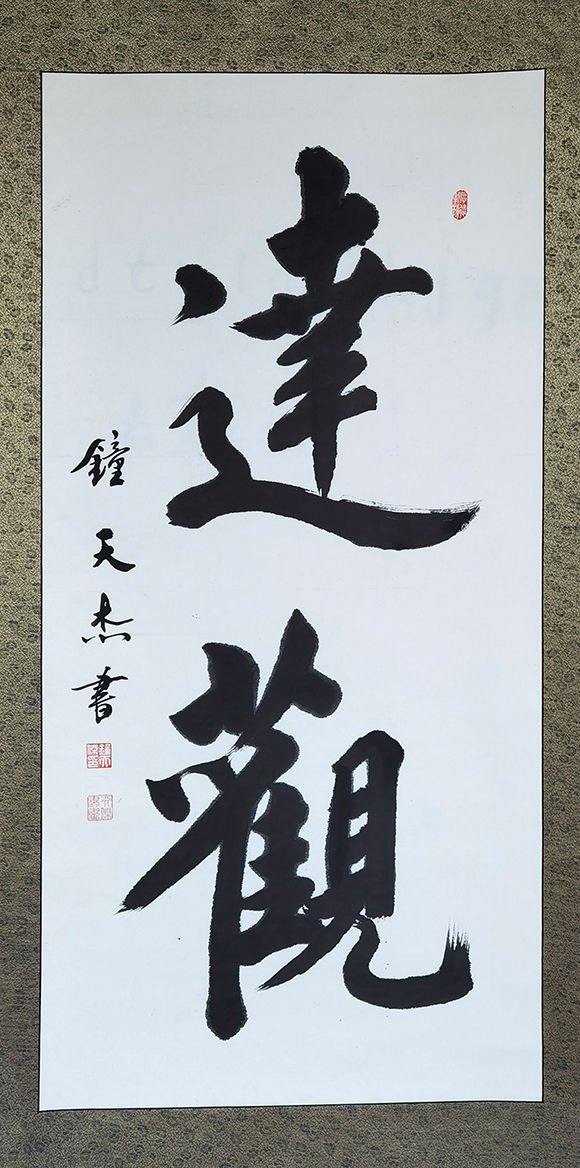 達觀
鐘天杰書